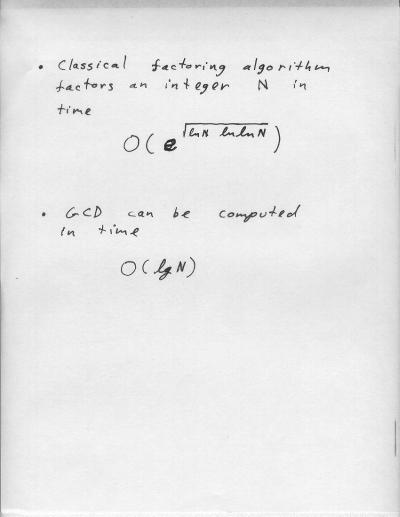 • Classical factoring algorithm
factors an integer N in
time
O(e^√(lnN lnlnN))
• GCD can be computed
in time
O(lgN)